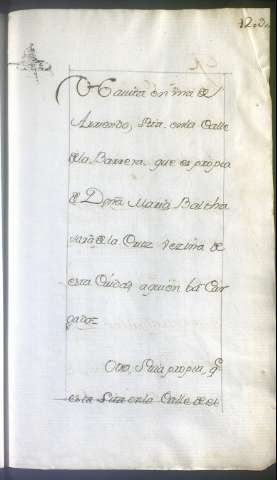 120
Havita en una de
Arriendo, Sita en la Calle
de la Barrera que es propia
de Doña Maria Baltha
sara de la Cruz vezina de
esta Ciudad, a quien ba Car
gada
Otra, Suia propia, q̃
esta Sita en la Calle de el